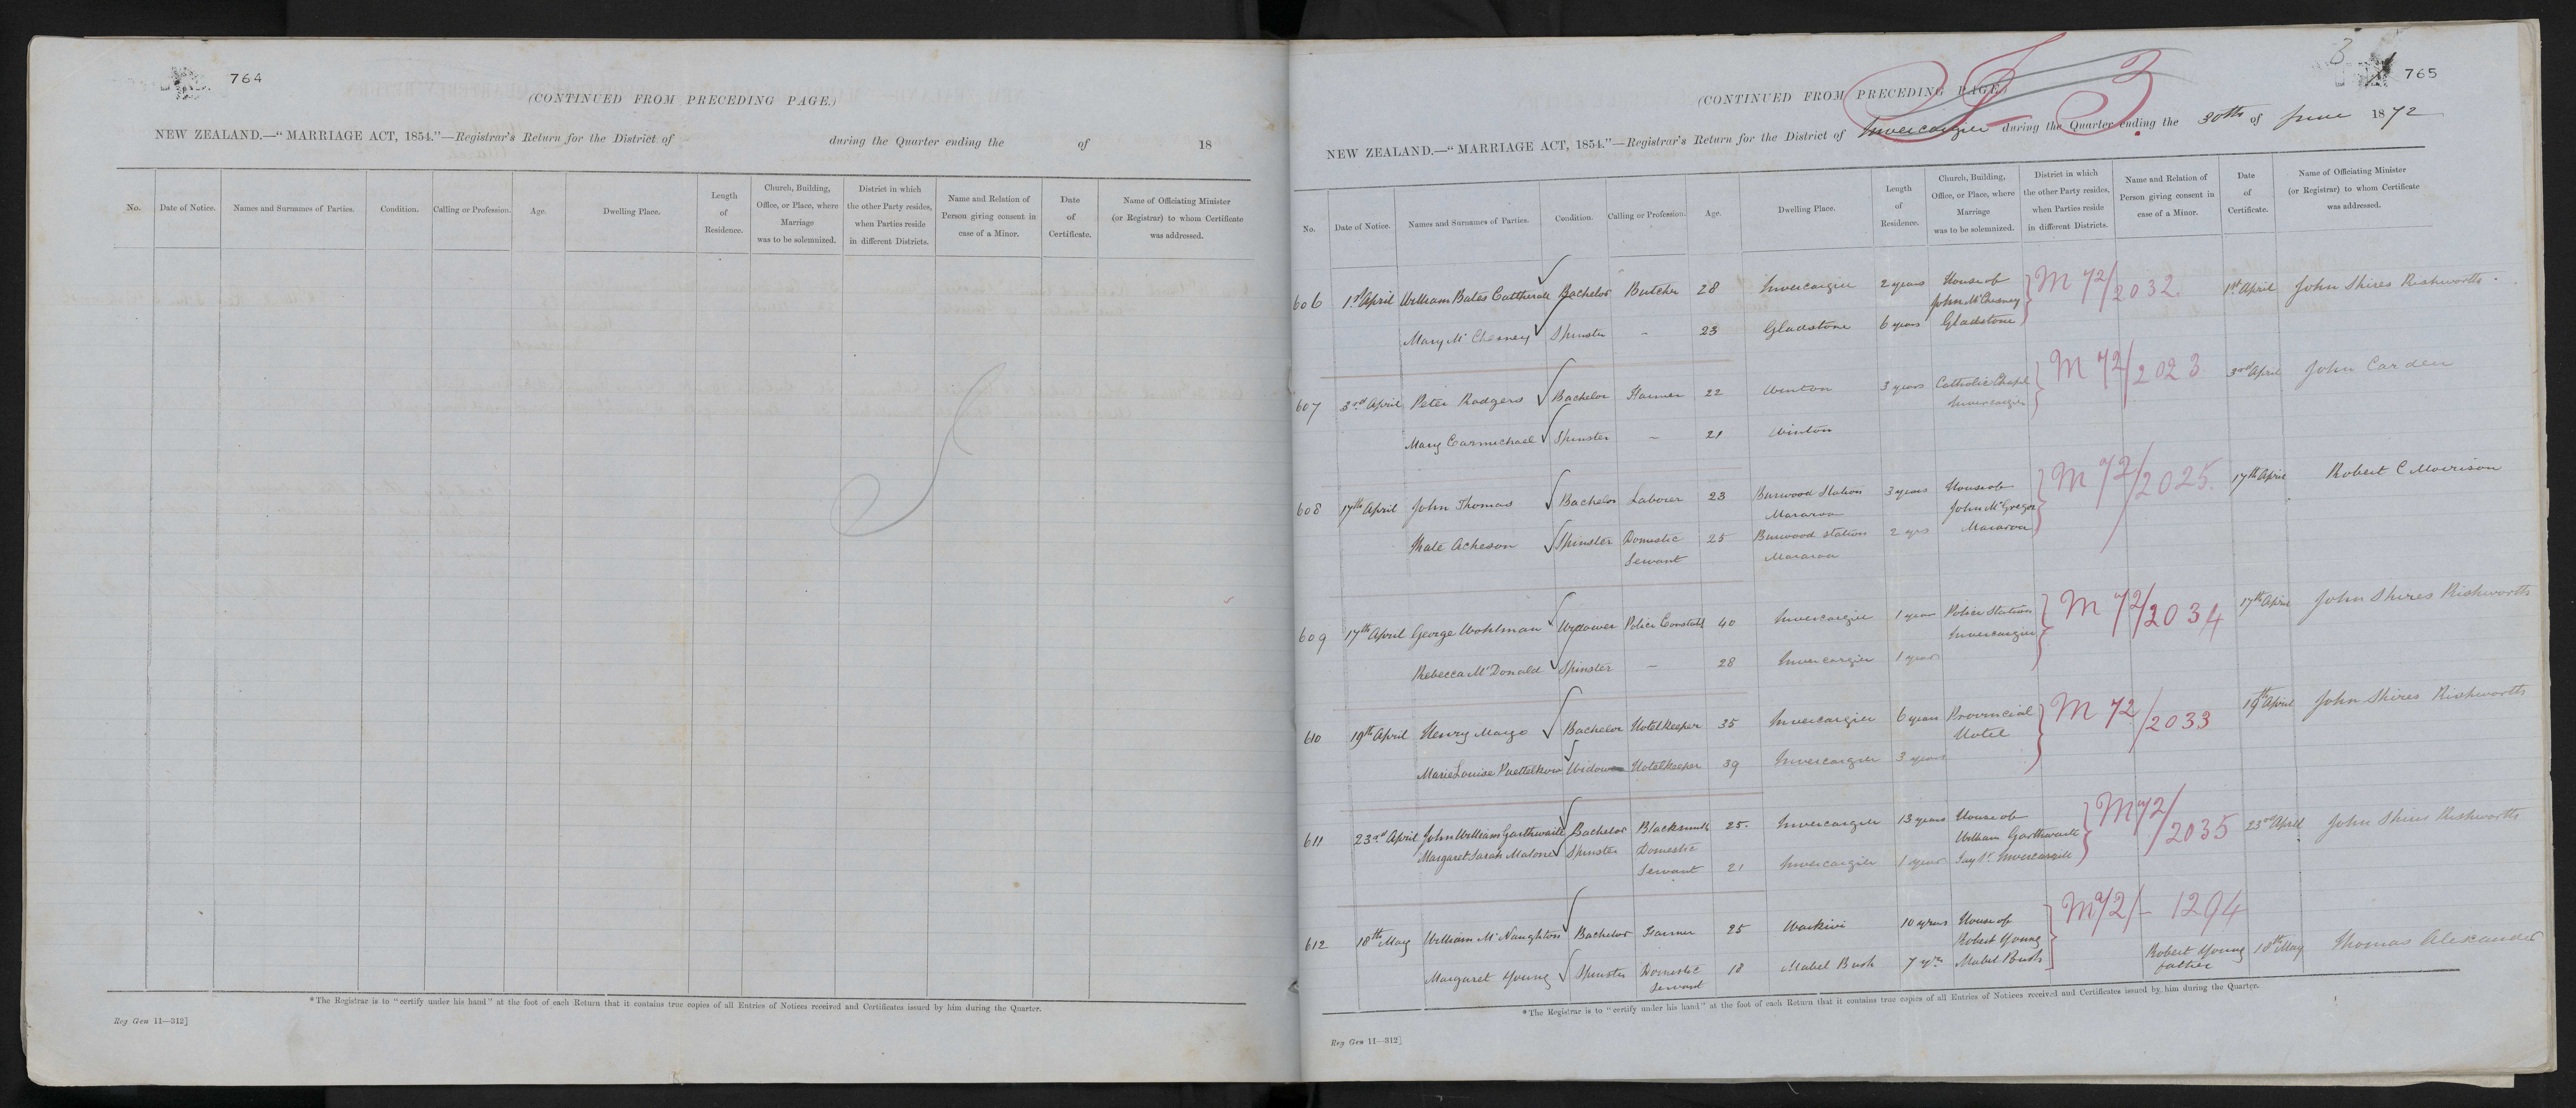 764
(CONTINUED FROM PRECEDING PAGE.)
NEW ZEALAND.—"MARRIAGE ACT, 1854."—Registrar's Return for the District of during the Quarter ending the of 18
No. Date of Notice. Names and Surnames of Parties. Condition. Calling or Profession. Age. Dwelling Place. Length of Residence. Church, Building, Office, or Place, where Marriage was to be solemnized. District in which the other Party resides, when Parties reside in different Districts. Name and Relation of Person giving consent in case of a Minor. Date of Certificate. Name of Officiating Minister (or Registrar) to whom Certificate was addressed.
*The Registrar is to "certify under his hand" at the foot of each Return that it contains true copies of all Entries of Notices received and Certificates issued by him during the Quarter.
Reg Gen 11—312]
3
765
(CONTINUED FROM PRECEDING PAGE.)
NEW ZEALAND.—"MARRIAGE ACT, 1854."—Registrar's Return for the District of Invercargill during the Quarter ending the 30th of June 1872
No. Date of Notice. Names and Surnames of Parties. Condition. Calling or Profession. Age. Dwelling Place. Length of Residence. Church, Building, Office, or Place, where Marriage was to be solemnized. District in which the other Party resides, when Parties reside in different Districts. Name and Relation of Person giving consent in case of a Minor. Date of Certificate. Name of Officiating Minister (or Registrar) to whom Certificate was addressed.
606 1st April William Bates Cattherall Bachelor Butcher 28 Invercargill 2 years House of John McChesney M 72/2032 1st April John Shires Rishworth
Mary McChesney Spinster – 23 Gladstone 6 years Gladstone
607 3rd April Peter Rodgers Bachelor Farmer 22 Winton 3 years Catholic Chapel Invercargill M 72/2023 3rd April John Carden
Mary Carmichael Spinster – 21 Winton
608 17th April John Thomas Bachelor Laborer 23 Burwood Station Mararoa 3 years House of John McGregor Mararoa M 72/2025 17th April Robert C Morrison
Kate Acheson Spinster Domestic Servant 25 Burwood Station Mararoa 2 yrs
609 17th April George Wohlman Widower Police Constabl 40 Invercargill 1 year Police Station Invercargill M 72/2034 17th April John Shires Rishworth
Rebecca McDonald Spinster – 28 Invercargill 1 year
610 19th April Henry Mayo Bachelor Hotelkeeper 35 Invercargill 6 years Provincial Hotel M 72/2033 19th April John Shires Rishworth
Marie Louise Puettelkow Widow Hotelkeeper 39 Invercargill 3 years
611 23rd April John William Garthwaite Bachelor Blacksmith 25 Invercargill 13 years House of William Garthwaite M 72/2035 23rd April John Shires Rishworth
Margaret Sarah Malone Spinster Domestic Servant 21 Invercargill 1 year Tay St Invercargill
612 18th May William McNaughton Bachelor Farmer 25 Waikivi 10 years House of Robert Young M 72/- 1294 18th May Thomas Alexander
Margaret Young Spinster Domestic Servant 18 Mabel Bush 7 yrs Mabel Bush Robert Young father
*The Registrar is to "certify under his hand" at the foot of each Return that it contains true copies of all Entries of Notices received and Certificates issued by him during the Quarter.
Reg Gen 11—312]